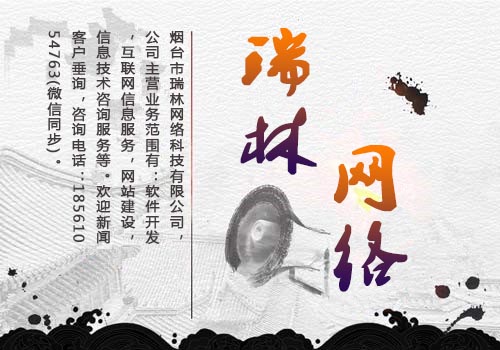 瑞林
网络
烟台市瑞林网络科技有限公司，
公司主营业务范围有：软件开发
，互联网信息服务，网站建设，
信息技术咨询服务等。欢迎新闻
客户垂询，咨询电话：185610
54763(微信同步)。